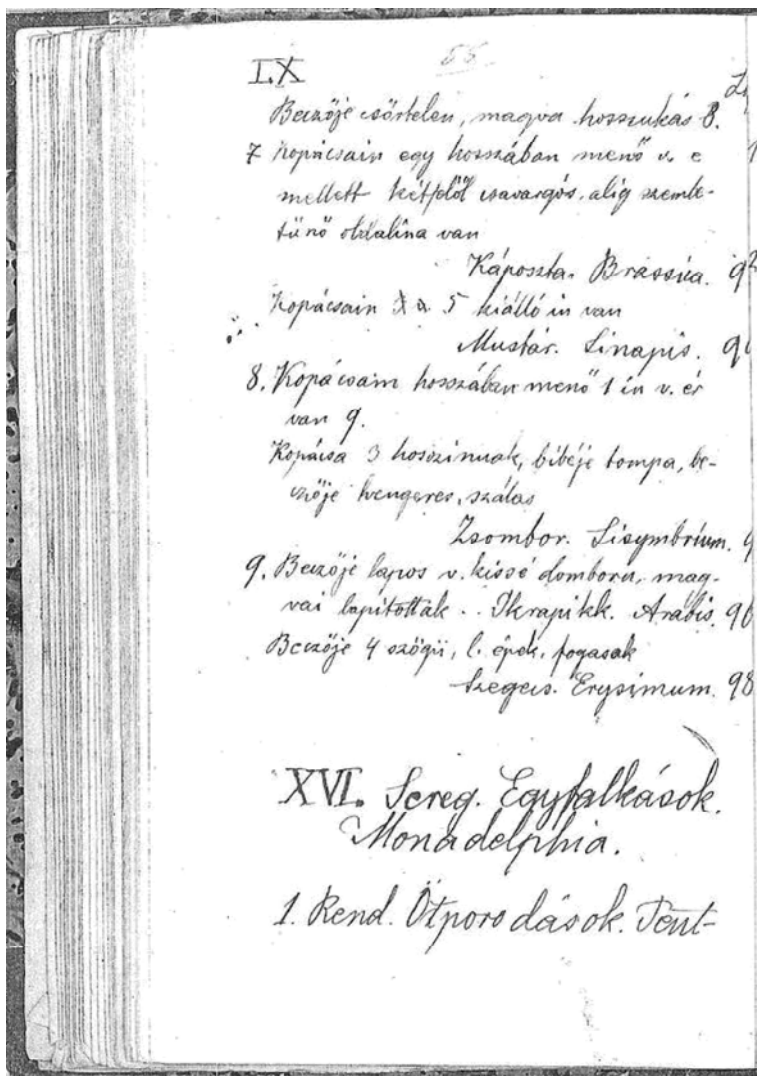 IX
55
Beczője csőrtelen, magva hosszukás 8.
7 Kopácsain egy hosszában menő v. e
mellett kétfelől csavargós, alig szembe-
tünő oldalina van
Káposzta. Brassica. 9
Kopácsain 3 a 5 kiálló in van
Mustár. Sinapis. 9
8. Kopácsain hosszában menő 1 in v. ér
van 9.
Kopácsa 3 hosszinuak, bibéje tompa, be-
czője hengeres, szálas
Zsombor. Sisymbrium. 9
9. Beczője lapos v. kissé domboru, mag-
vai lapitottak .. Ikrapikk. Arabis. 96
Beczője 4 szögü, l. épek, fogasak
Szegecs. Erysimum. 98
XVI. Sereg. Egyfalkások.
Monadelphia.
1. Rend. Ötporodások. Pent-